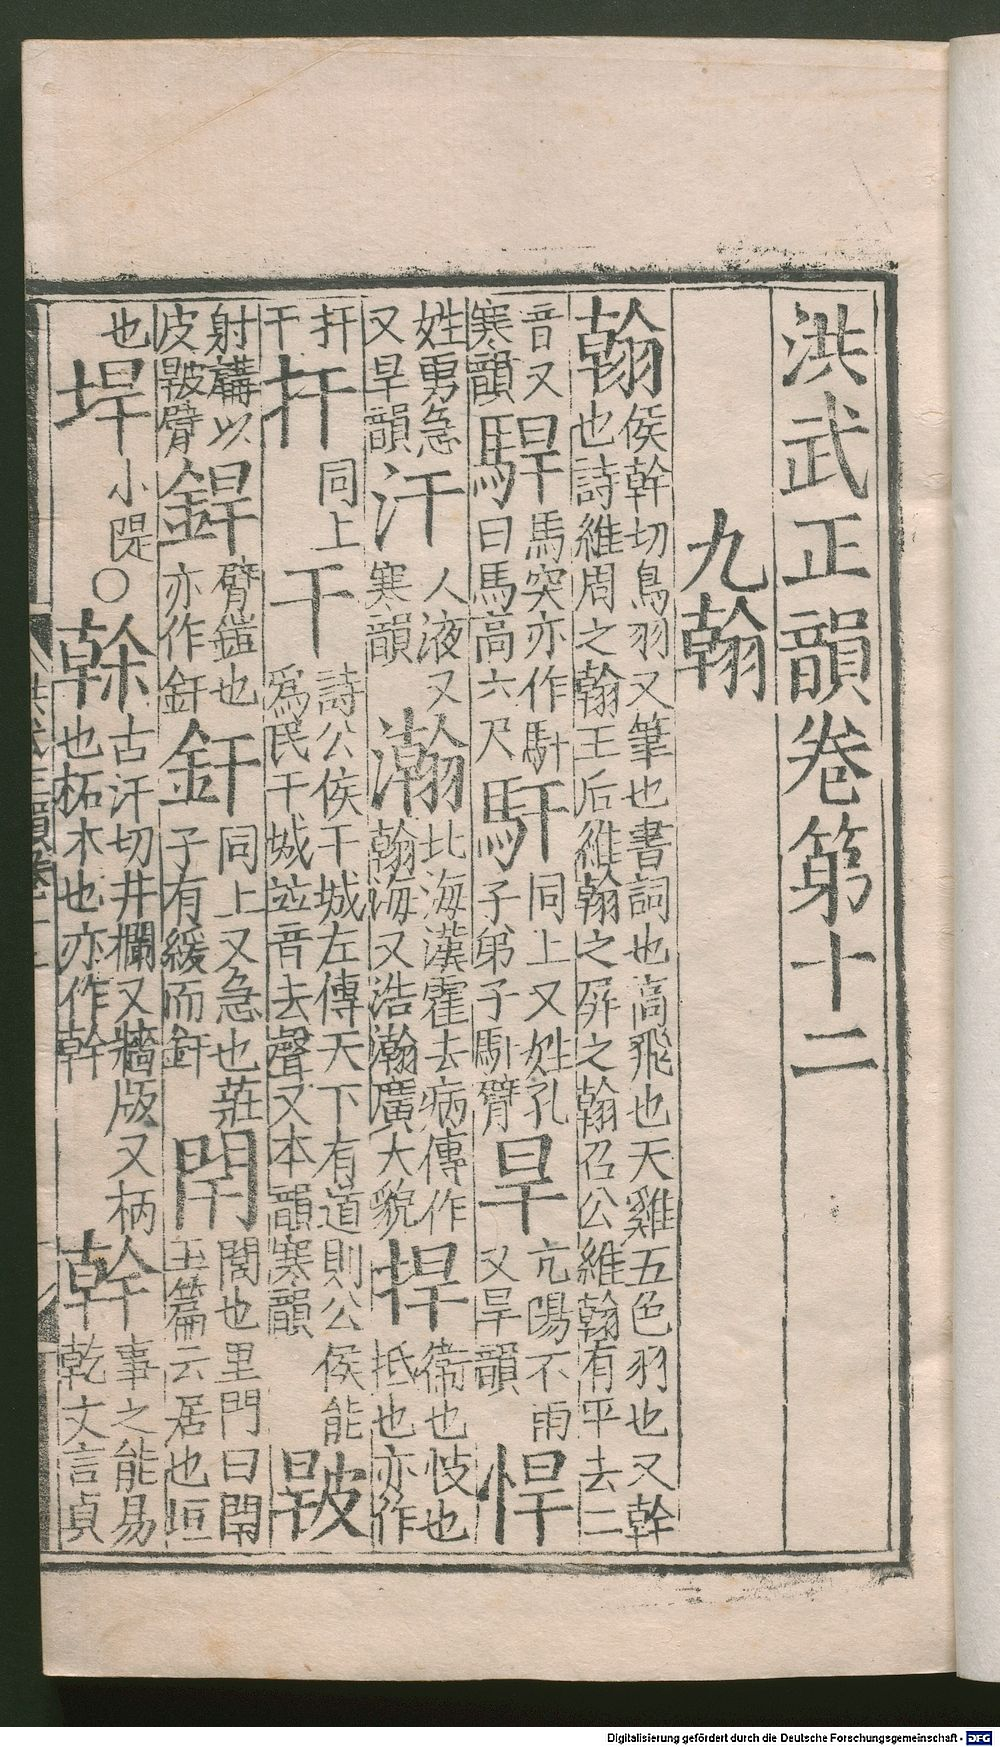 洪武正韻卷第十二
九翰
翰侯幹切鳥羽又筆也書詞也高飛也天雞五色羽也又幹也詩維周之翰王后維翰之屏之翰召公維翰有平去二
音又寒韻駻馬突亦作馯曰馬高六尺馯同上又姓孔子弟子馯臂旱亢陽不雨又旱韻悍
姓勇急又旱韻汗人液又寒韻瀚北海漢霍去病傳作翰海又浩瀚廣大貌捍衞也忮也抵也亦作
扞干扞同上干詩公侯干城左傳天下有道則公侯能爲民干城竝音去聲又本韻寒韻皾
射韝以皮皾臂銲臂鎧也亦作釬釬同上又急也莊子有緩而釬閈閭也里門曰閈玉篇云居也垣
也垾小隄○榦古汗切井欄又牆版又柄也柘木也亦作幹幹事之能易乾文言貞
Digitalisierung gefördert durch die Deutsche Forschungsgemeinschaft - DFG